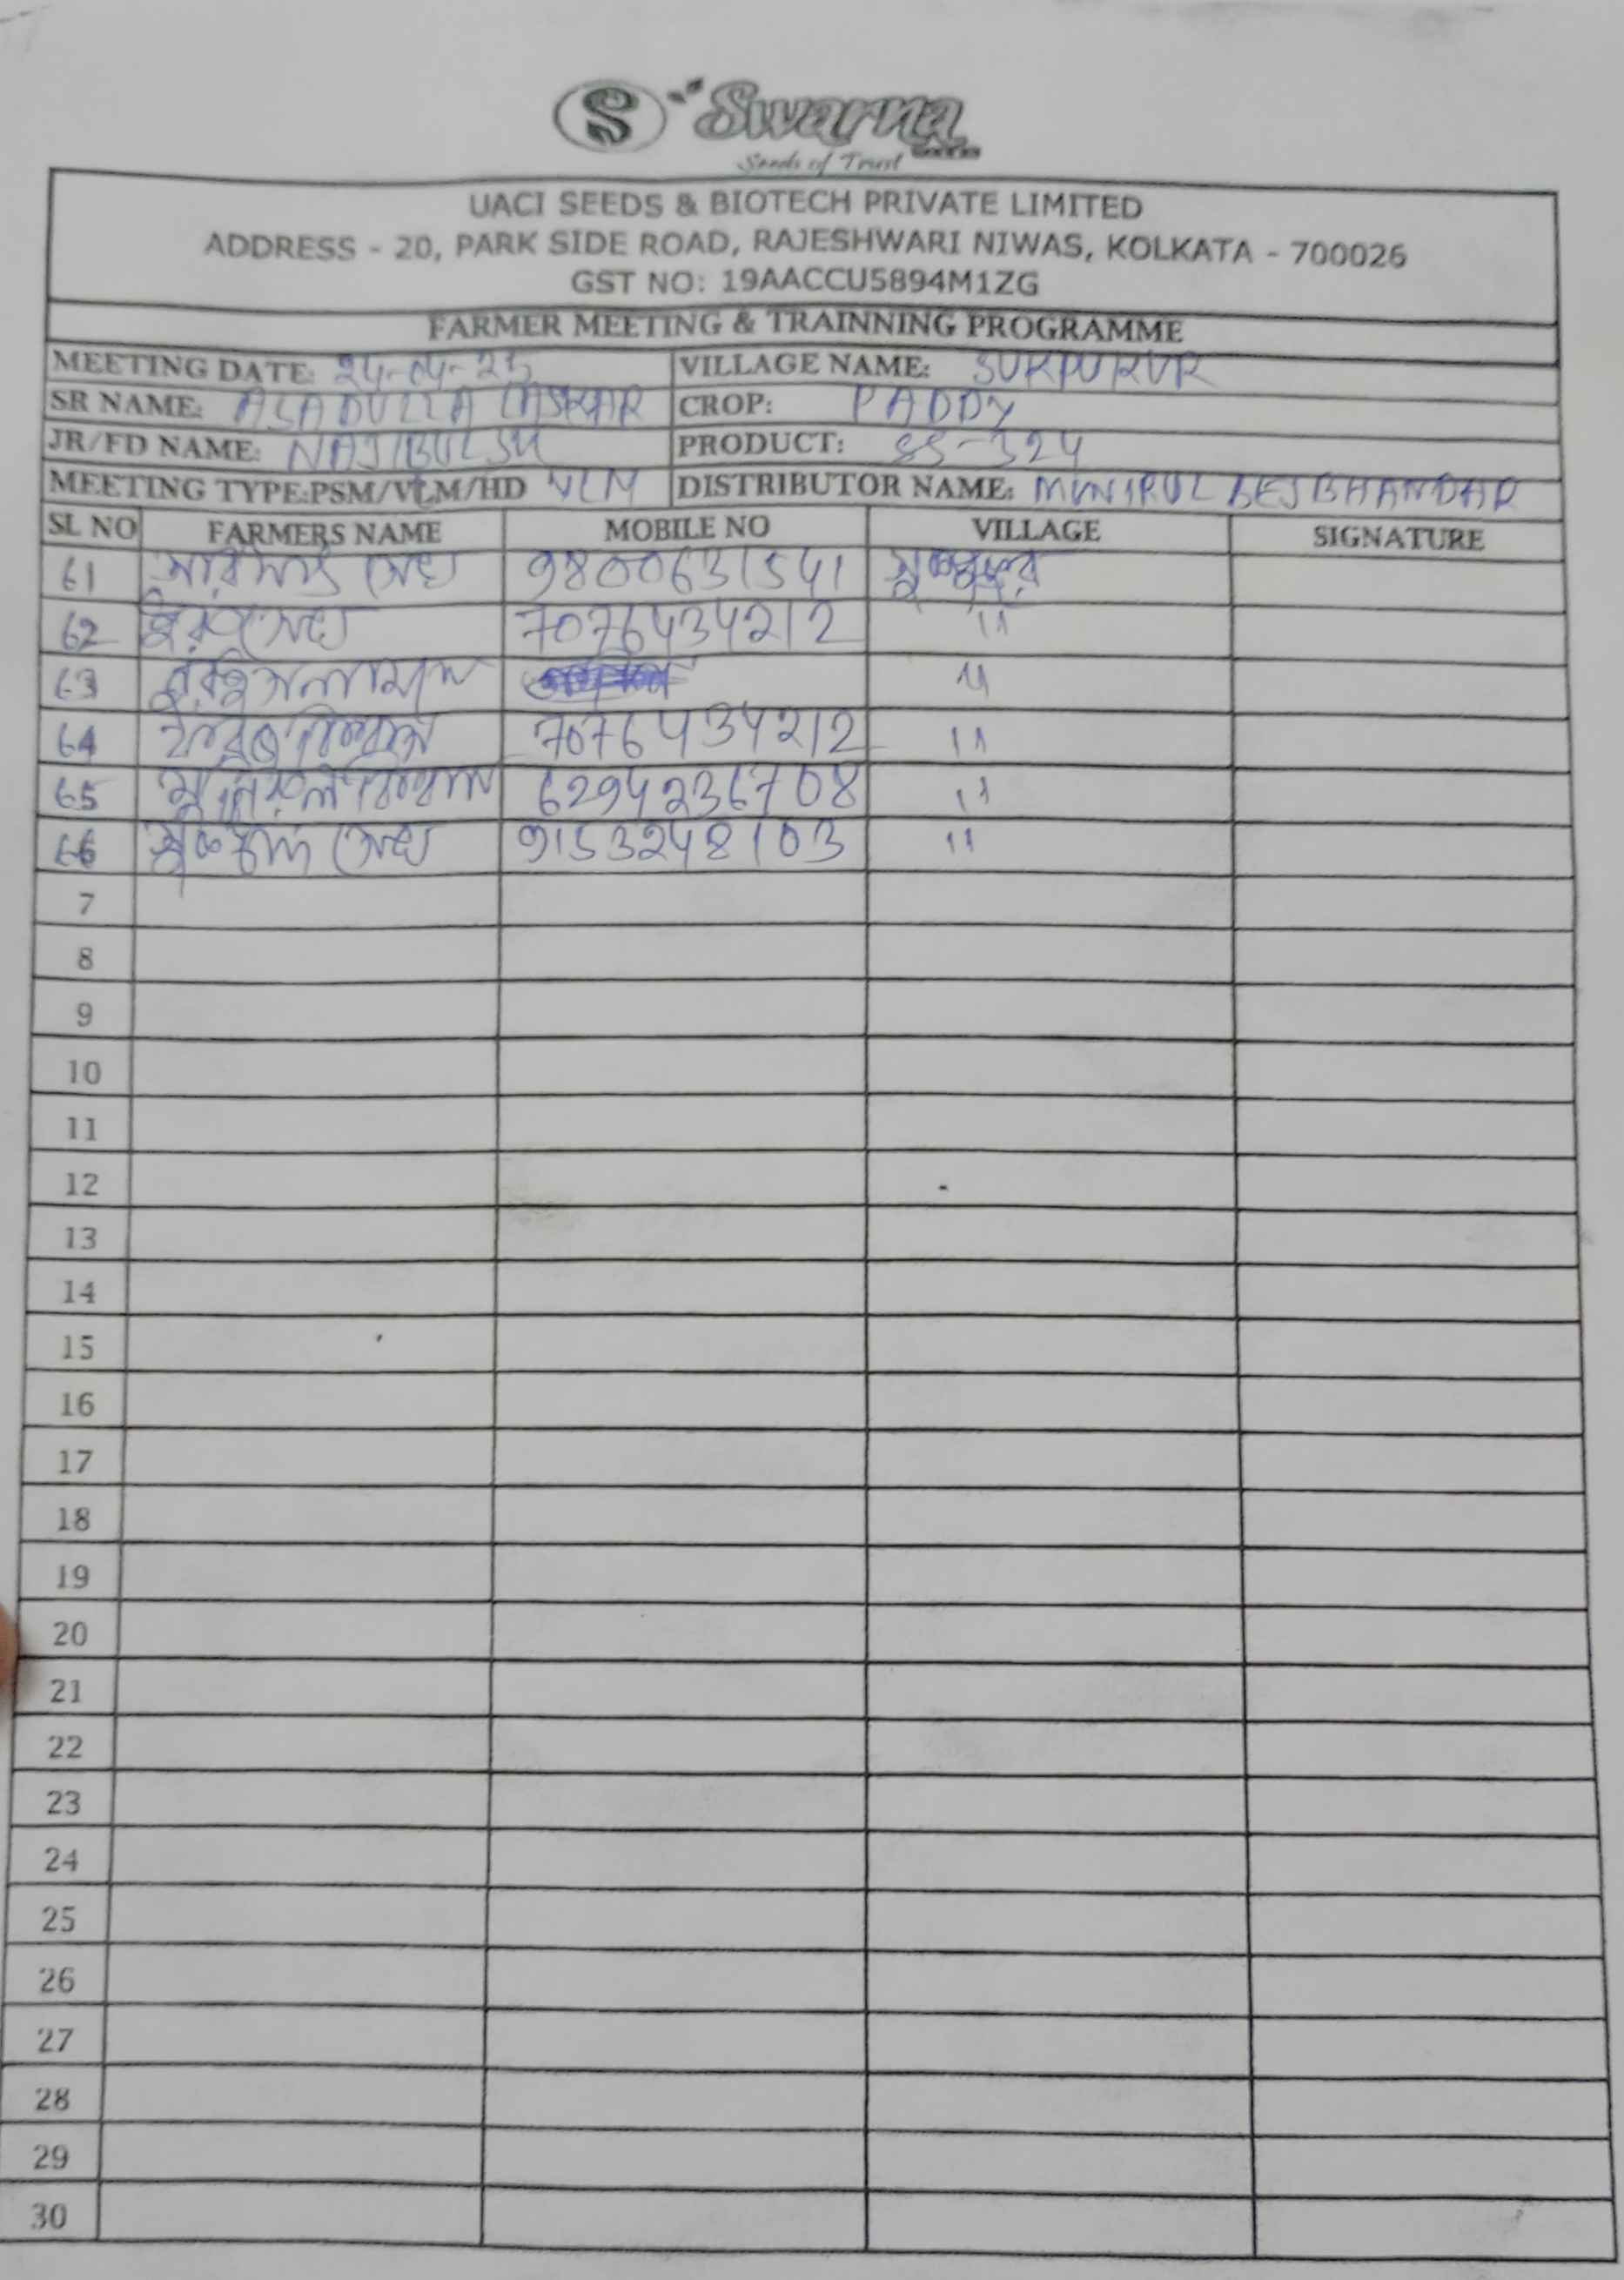 S Swarna
Seeds of Trust
UACI SEEDS & BIOTECH PRIVATE LIMITED
ADDRESS - 20, PARK SIDE ROAD, RAJESHWARI NIWAS, KOLKATA - 700026
GST NO: 19AACCU5894M1ZG
FARMER MEETING & TRAINNING PROGRAMME
MEETING DATE: 24-04-25 VILLAGE NAME: SUKPUKUR
SR NAME: ASADULLA LASKAR CROP: PADDY
JR/FD NAME: NAJIBUL SK PRODUCT: SS-324
MEETING TYPE:PSM/VLM/HD VLM DISTRIBUTOR NAME: MUNIRUL BEJ BHANDAR
SL NO FARMERS NAME MOBILE NO VILLAGE SIGNATURE
61 সেখ 9800631541
62 সেখ 7076434212 11
63 11
64 বিশ্বাস 7076434212 11
65 মনিরুল বিশ্বাস 6294236708 11
66 সেখ 9153248103 11
7
8
9
10
11
12
13
14
15
16
17
18
19
20
21
22
23
24
25
26
27
28
29
30